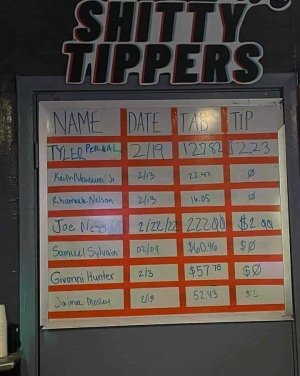 SHITTY
TIPPERS
NAME DATE TAB TIP
TYLER PERNAL 2/19 127.82 2.23
Keith Newsum Jr 2/13 22.47 Ø
Rhameek Nelson 2/3 16.05 Ø
Joe 2/22/22 222.00 $2.00
Samuel Sylvain 02/09 $60.46 $Ø
Givonni Hunter 2/3 $57.76 $Ø
Jaimee Mosley 2/3 52.43